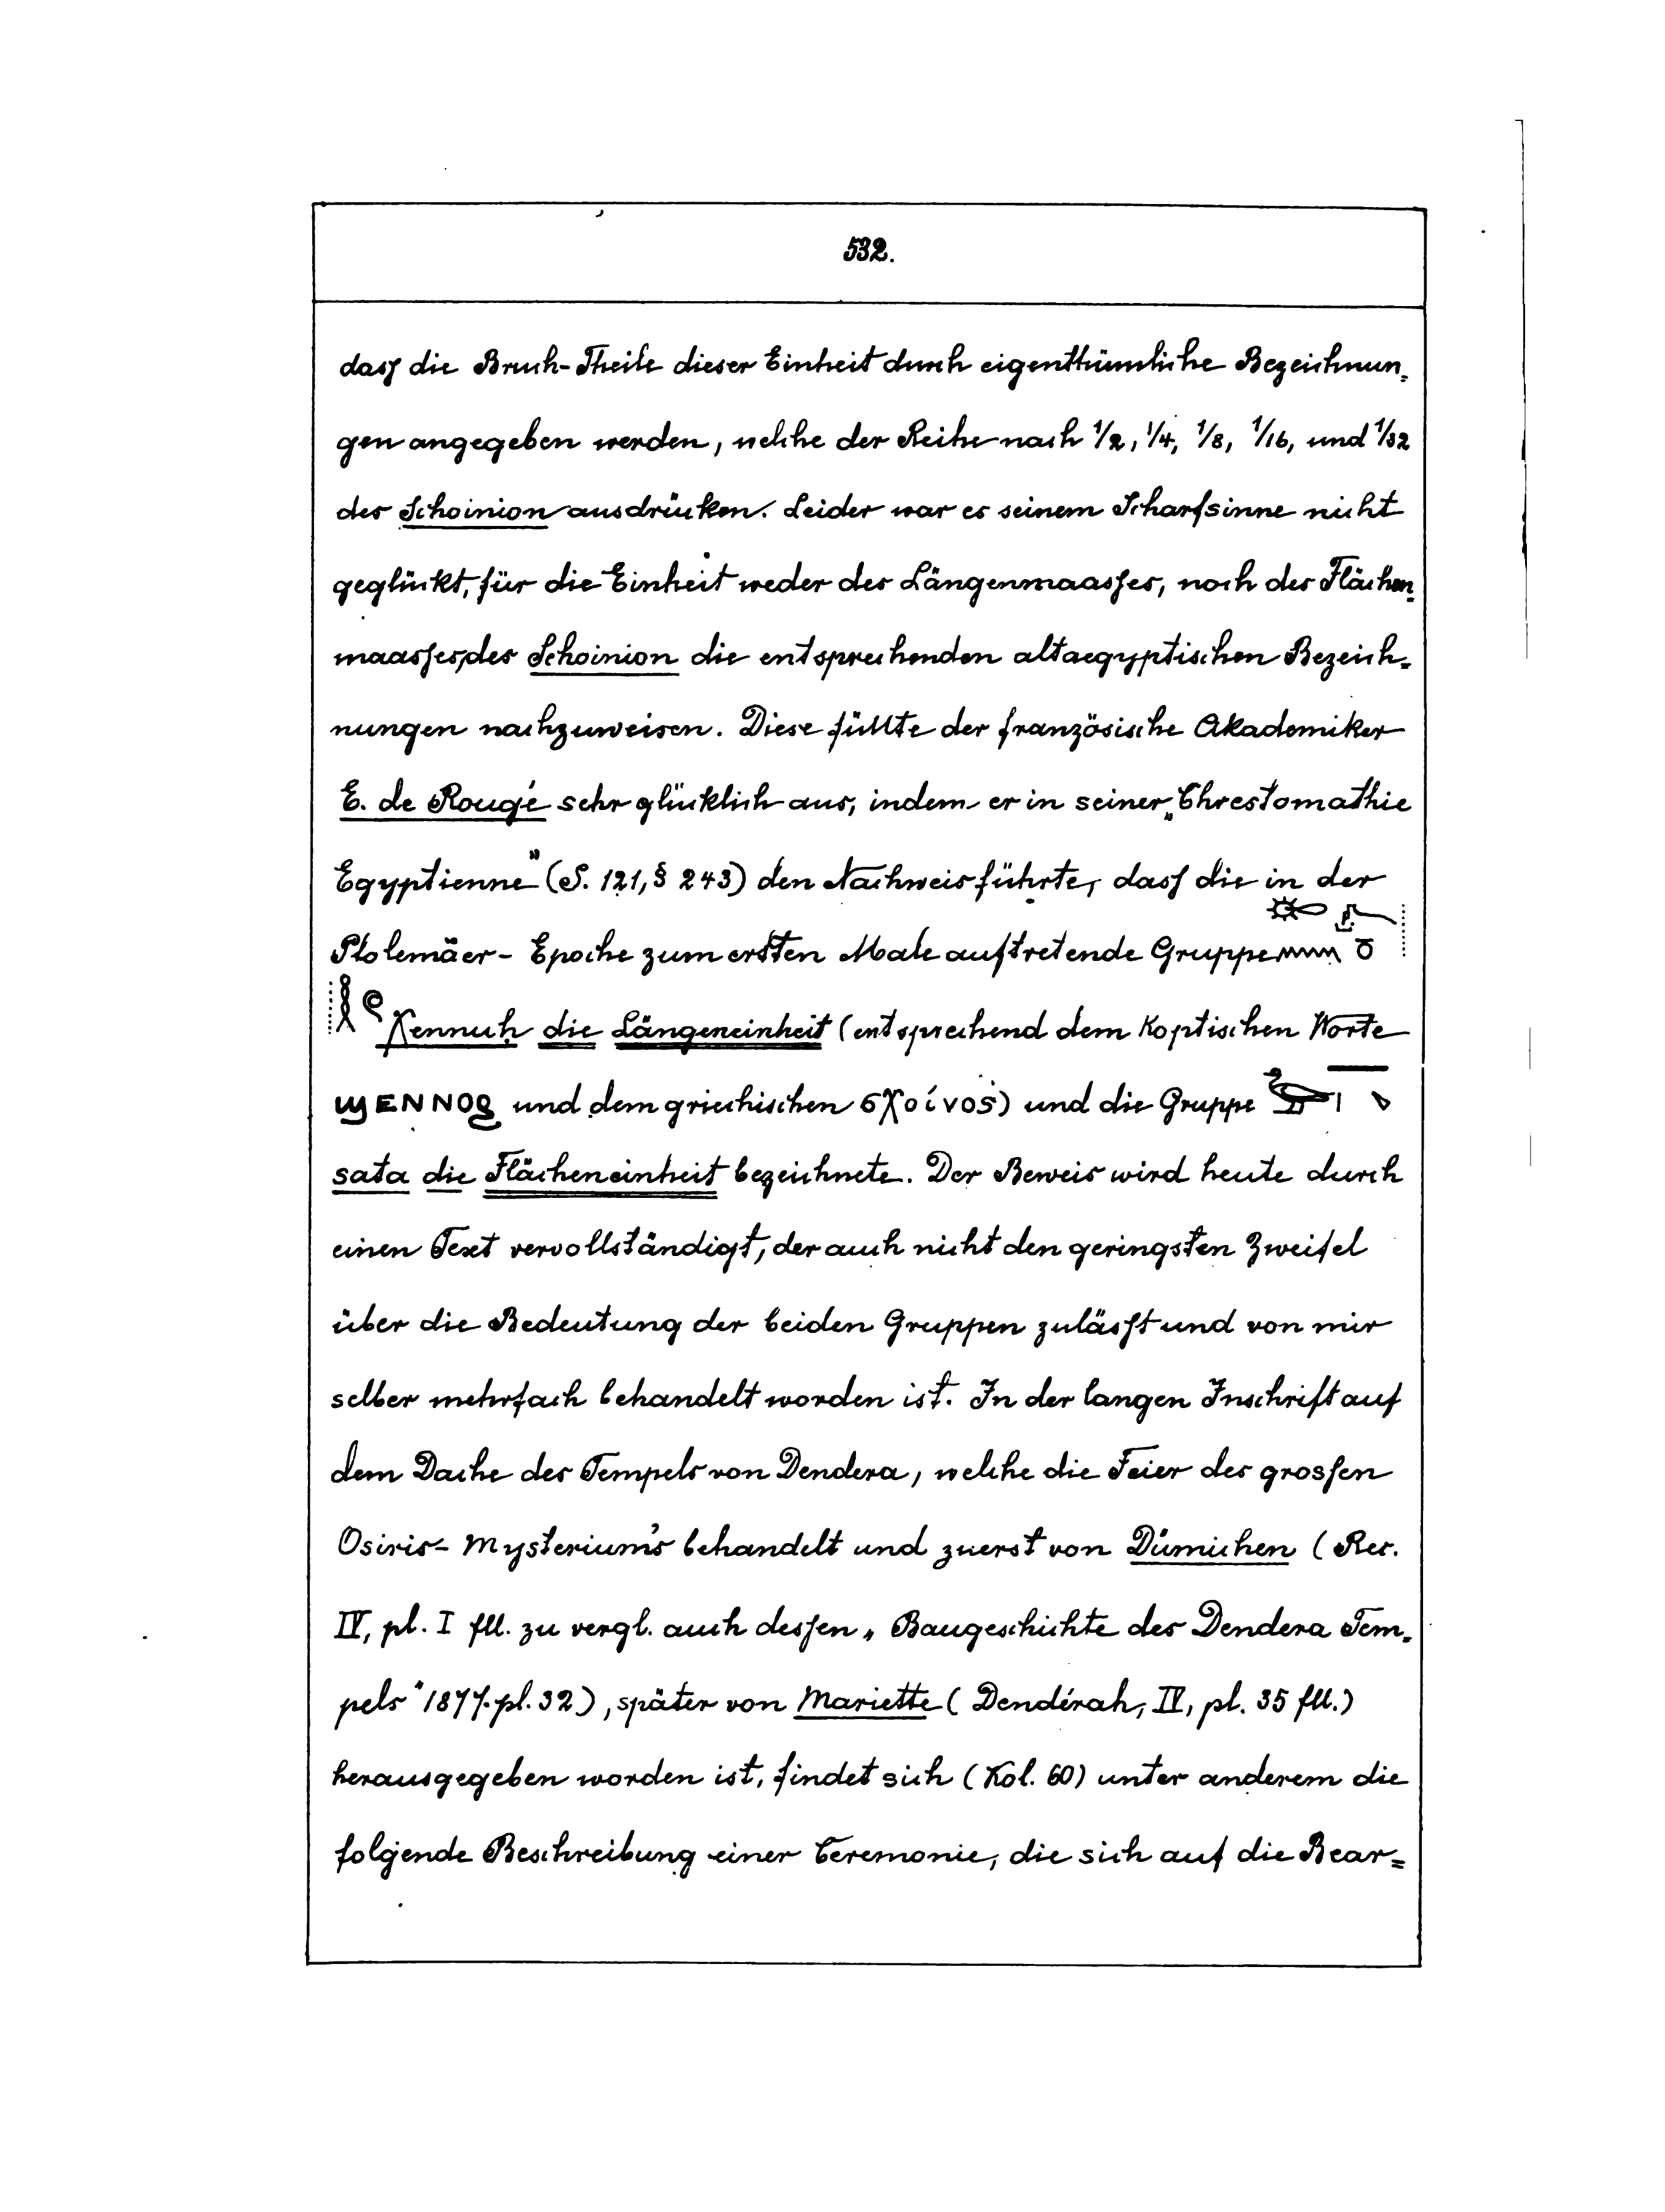 532.
dass die Bruch-Theile dieser Einheit durch eigenthümliche Bezeichnun-
gen angegeben werden, welche der Reihe nach 1/2, 1/4, 1/8, 1/16, und 1/32
des Schoinion ausdrücken. Leider war es seinem Scharfsinne nicht
geglückt, für die Einheit weder des Längenmaasses, noch des Flächen-
maasses, des Schoinion die entsprechenden altaegyptischen Bezeich-
nungen nachzuweisen. Diese füllte der französische Akademiker
E. de Rougé sehr glücklich aus, indem er in seiner „Chrestomathie
Egyptienne" (S. 121, § 243) den Nachweis führte, dass die in der
Ptolemäer-Epoche zum ersten Male auftretende Gruppe
Xennuh die Längeneinheit (entsprechend dem Koptischen Worte
ϣΕΝΝΟϩ und dem griechischen σχοίνος) und die Gruppe
sata die Flächeneinheit bezeichnete. Der Beweis wird heute durch
einen Text vervollständigt, der auch nicht den geringsten Zweifel
über die Bedeutung der beiden Gruppen zulässt und von mir
selber mehrfach behandelt worden ist. In der langen Inschrift auf
dem Dache des Tempels von Dendera, welche die Feier des grossen
Osiris-Mysterium's behandelt und zuerst von Dümichen (Rec.
IV, pl. I fll. zu vergl. auch dessen „Baugeschichte des Dendera Tem-
pels" 1877. pl. 32), später von Mariette (Dendérah, IV, pl. 35 fll.)
herausgegeben worden ist, findet sich (Kol. 60) unter anderem die
folgende Beschreibung einer Ceremonie, die sich auf die Bear=